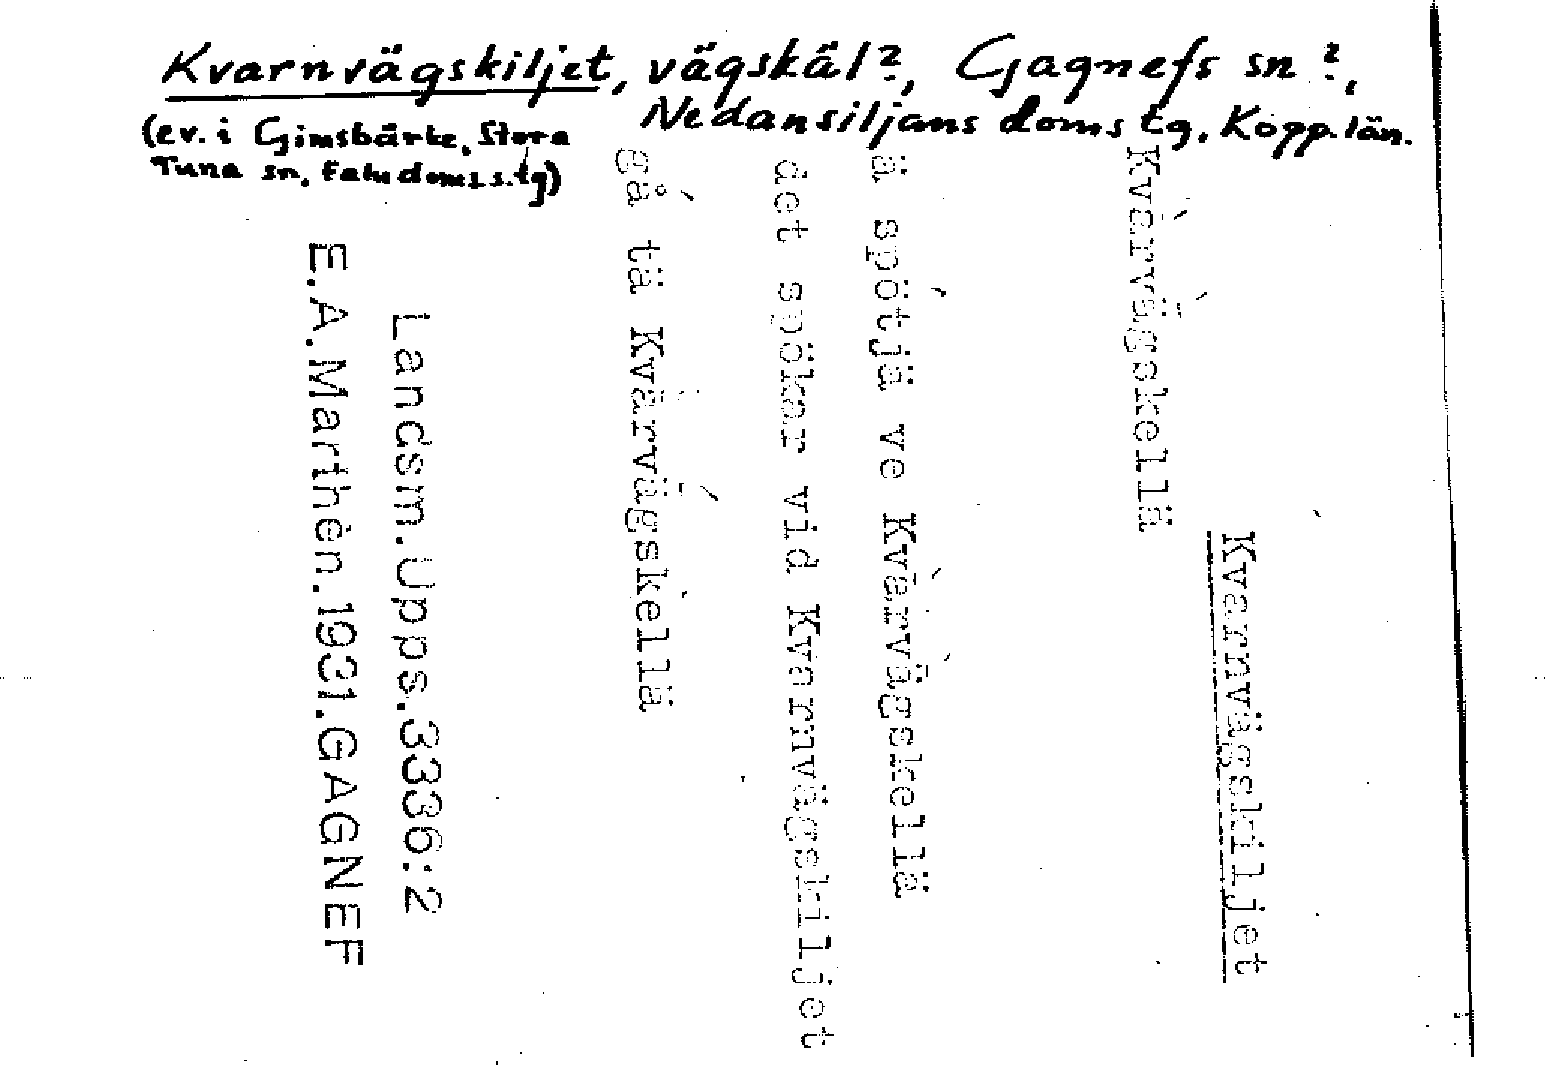 Kvarnvägskiljet, vägskäl?, Gagnefs sn?,
Nedansiljans doms tg, Kopp. län.
(ev. i Gimsbärke, Stora
Tuna sn, Falu doms.s.tg)
Kvarnvägskiljet
Kvärvägskellä
ä spötjä ve Kvärvägskellä
det spökar vid Kvarnvägskiljet
gå tä Kvärvägskellä
Landsm.Upps.3336:2
E.A.Marthén.1931.GAGNEF